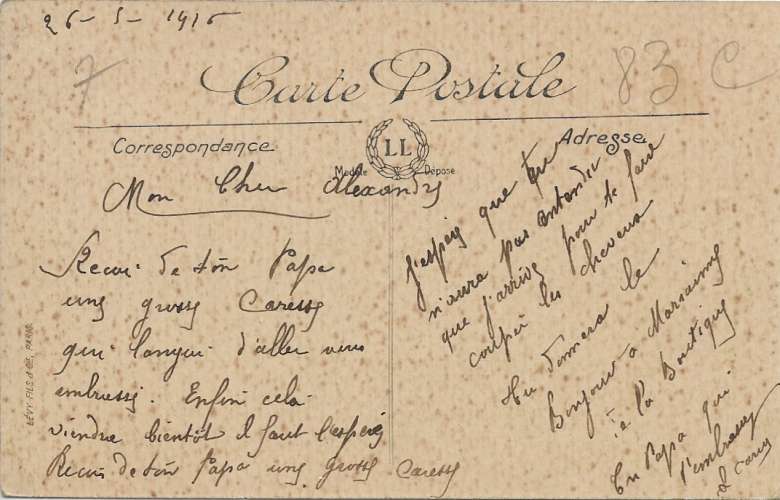 26-5-1916
7
83 C
Carte Postale
Correspondance
LL
Modèle Déposé
Adresse
Mon Cher Alexandre
Recoi de ton Papa
une grosse Caresse
qui langui d'aller vous
embrasse. Enfin cela
viendra bientôt il faut l'espére
Recois de ton Papa une grosse Caresse
J'espère que tu
n'aura pas entendu
que j'arrive pour te faire
coupér les cheveux
tu donnera le
Bonjour a Marianne
à la Boutique
Ton Papa qui
t'embrasse
LÉVY FILS & CIE, PARIS